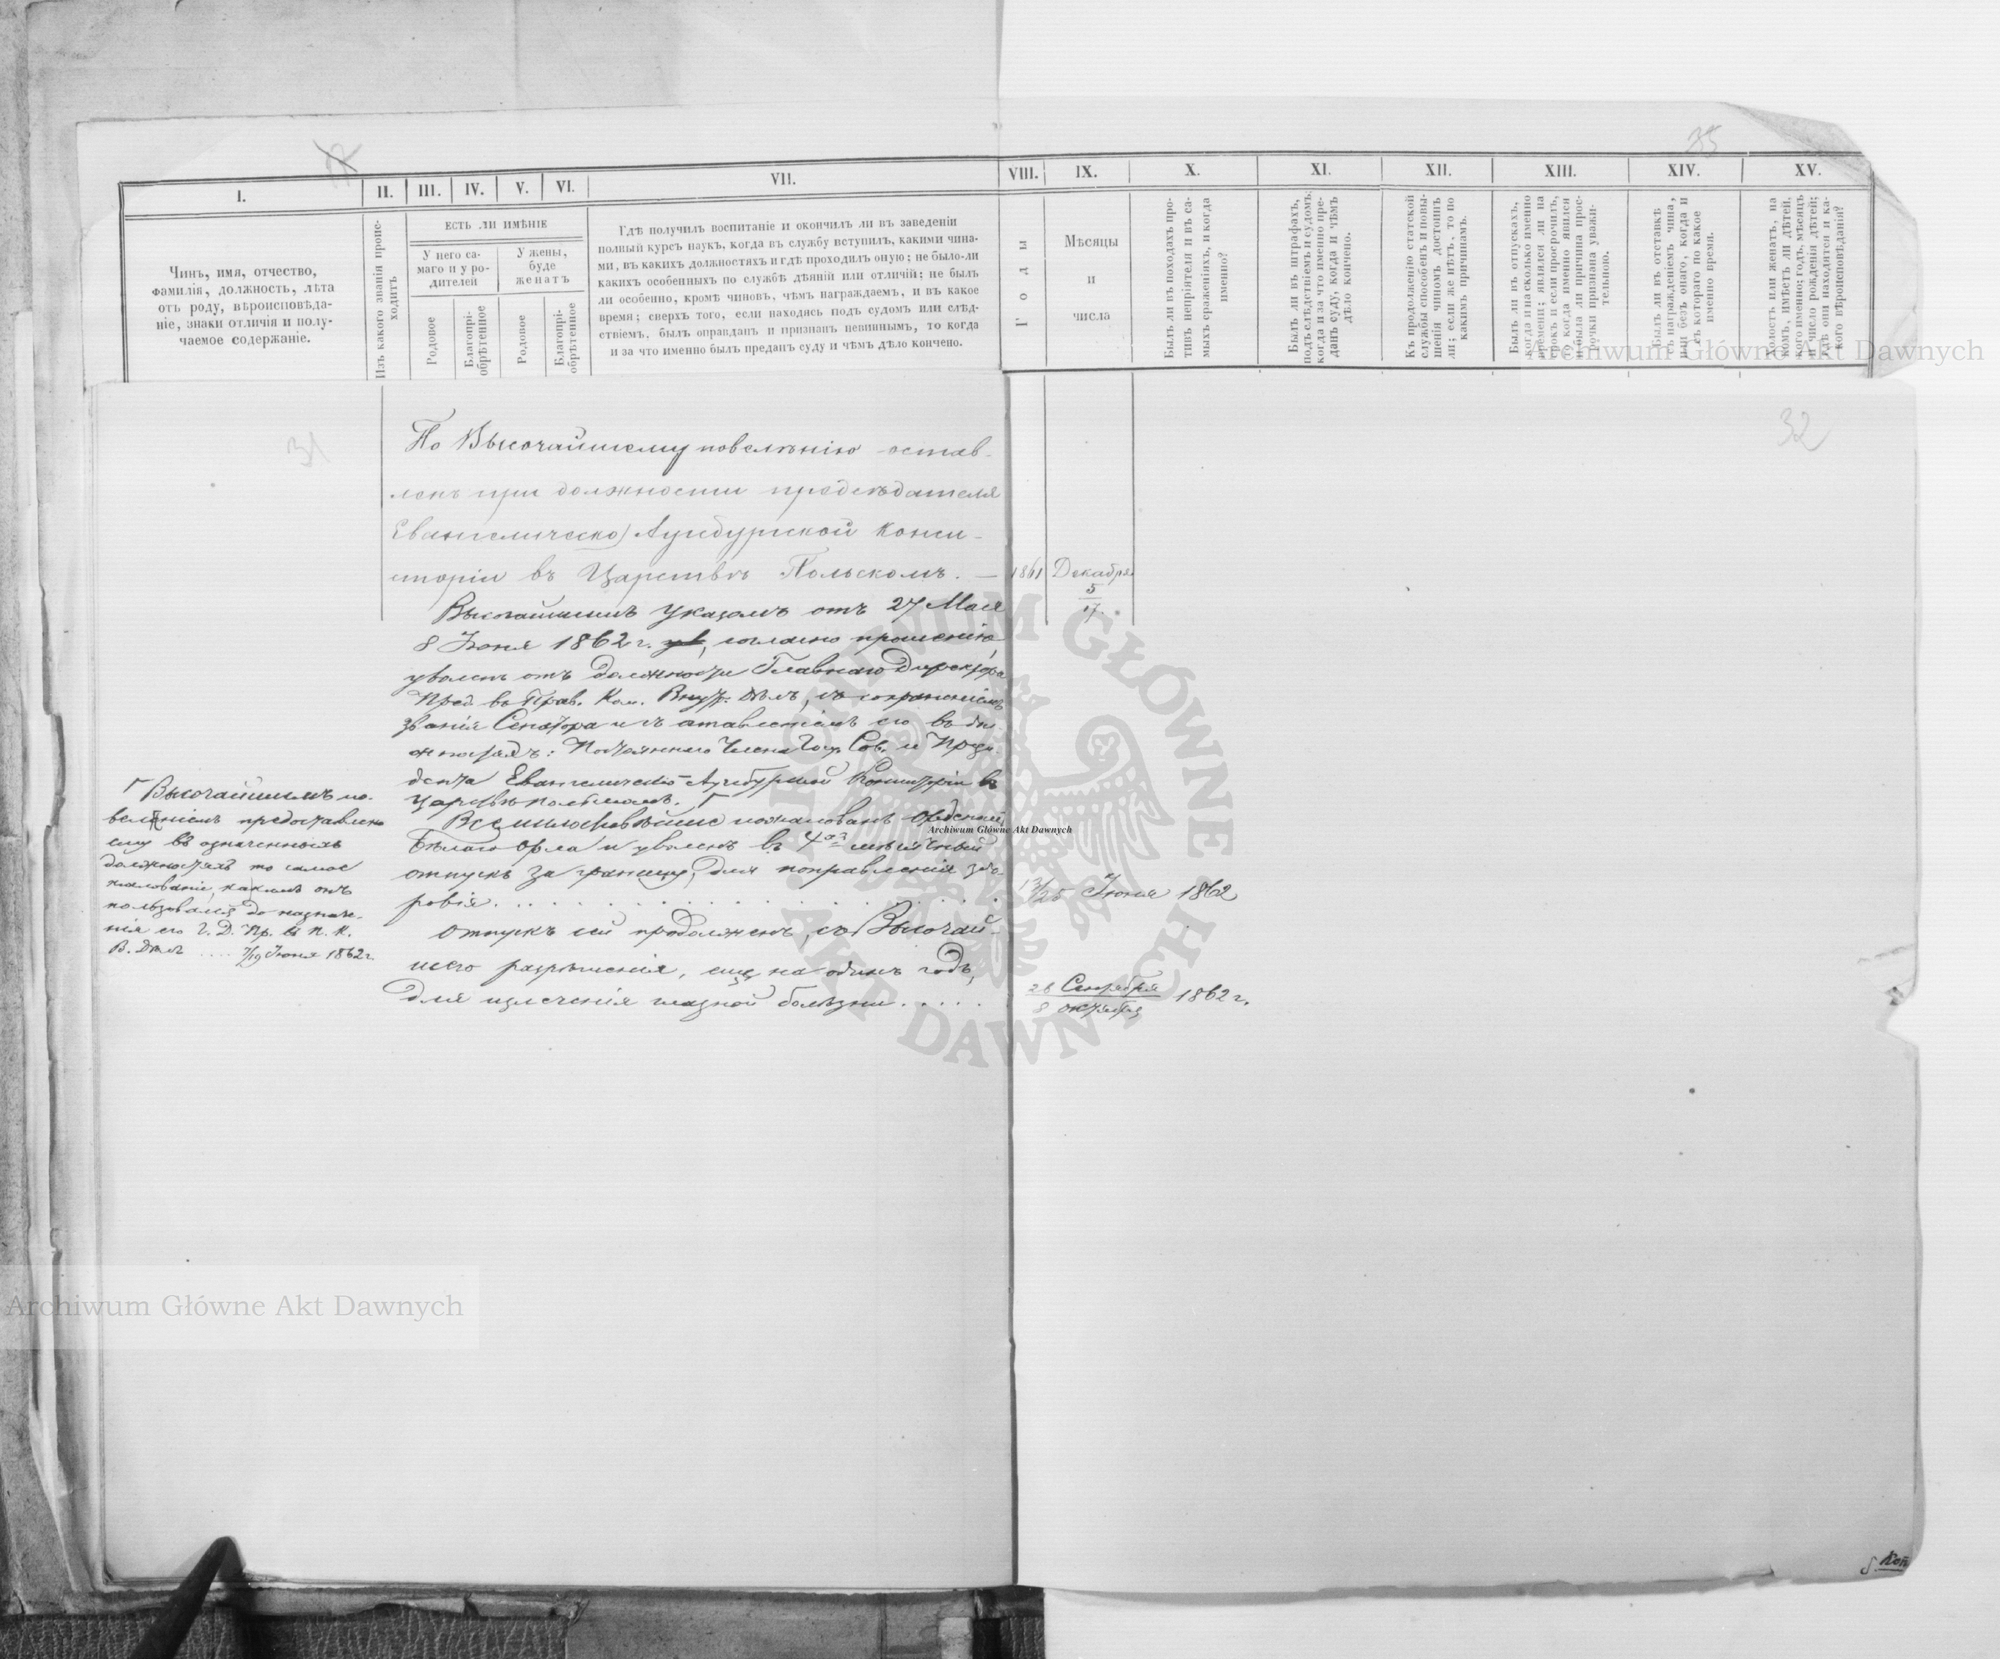 35
I.
II.
III.
IV.
V.
VI.
VII.
VIII.
IX.
X.
XI.
XII.
XIII.
XIV.
XV.
Чинъ, имя, отчество,
фамилія, должность, лѣта
отъ роду, вѣроисповѣда-
ніе, знаки отличія и полу-
чаемое содержаніе.
Изъ какого званія проис-
ходитъ
ЕСТЬ ЛИ ИМѢНІЕ
У него са-
маго и у ро-
дителей
У жены,
буде
женатъ
Родовое
Благопрі-
обрѣтенное
Родовое
Благопрі-
обрѣтенное
Гдѣ получилъ воспитаніе и окончилъ ли въ заведеніи
полный курсъ наукъ, когда въ службу вступилъ, какими чина-
ми, въ какихъ должностяхъ и гдѣ проходилъ оную; не было-ли
какихъ особенныхъ по службѣ дѣяній или отличій; не былъ
ли особенно, кромѣ чиновъ, чѣмъ награждаемъ, и въ какое
время; сверхъ того, если находясь подъ судомъ или слѣд-
ствіемъ, былъ оправданъ и признанъ невиннымъ, то когда
и за что именно былъ преданъ суду и чѣмъ дѣло кончено.
Годы
Мѣсяцы
и
числа
Былъ ли въ походахъ про-
тивъ непріятеля и въ са-
мыхъ сраженіяхъ, и когда
именно?
Былъ ли въ штрафахъ,
подъ слѣдствіемъ и судомъ;
когда и за что именно пре-
данъ суду, когда и чѣмъ
дѣло кончено.
Къ продолженію статской
службы способенъ и повы-
шенія чиномъ достоинъ
ли; если же нѣтъ, то по
какимъ причинамъ.
Былъ ли въ отпускахъ,
когда и на сколько именно
времени; являлся ли на
срокъ и если просрочилъ,
то когда именно явился
и была ли причина прос-
рочки признана уважи-
тельною.
Былъ ли въ отставкѣ
съ награжденіемъ чина,
или безъ онаго, когда и
съ котораго по какое
именно время.
Холостъ или женатъ, на
комъ, имѣетъ ли дѣтей,
кого именно; годъ, мѣсяцъ
и число рожденія дѣтей;
гдѣ они находятся и ка-
кого вѣроисповѣданія?
31
32
По Высочайшему повелѣнію остав-
ленъ при должности предсѣдателя
Евангелическо Аугсбургской Конси-
сторіи въ Царствѣ Польскомъ. —
1861
Декабря
5
17.
Высочайшимъ указомъ отъ 27 Мая
8 Іюня 1862 г. согласно прошенію,
уволенъ отъ должности Главнаго Директора
Пред. въ Прав. Ком. Внут. Дѣлъ, съ сохраненіемъ
званія Сенатора и съ оставленіемъ его въ
: Постояннаго Члена Гос. Сов. и Прези-
дента Евангелическо-Аугсбургской Консисторіи въ
Царствѣ Польскомъ. Г
Г Высочайшимъ по-
велѣніемъ предоставлено
ему въ означенныхъ
должностяхъ то самое
жалованіе, какимъ онъ
пользовался до назначе-
нія его Г. Д. Пр. въ П. К.
В. Дѣлъ .... 7/19 Іюня 1862 г.
Всемилостивѣйше пожалованъ Орденомъ
Бѣлаго Орла и уволенъ въ 4хъ мѣсячный
отпускъ за границу, для поправленія здо-
ровія. . . . . . . . . . . . . .
13/25 Іюня 1862
Отпускъ сей продолженъ, съ Высочай-
шего разрѣшенія, еще на одинъ годъ,
для излеченія глазной болѣзни . . . . .
26 Сентября
8 Октября
1862 г.
Archiwum Główne Akt Dawnych
Archiwum Główne Akt Dawnych
Archiwum Główne Akt Dawnych
ARCHIWUM GŁÓWNE AKT DAWNYCH